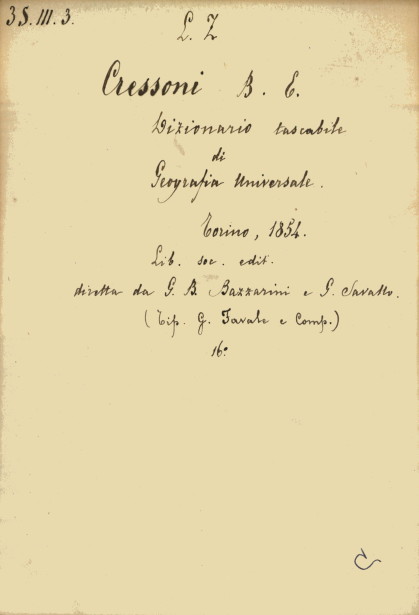 35.III.3.
L. Z
Cressoni B. E.
Dizionario tascabile
di
Geografia Universale.
Torino, 1854.
Lib. soc. edit.
diretta da G. B. Bazzarini e G. Savallo.
(Tip. G. Favale e Comp.)
16°
C